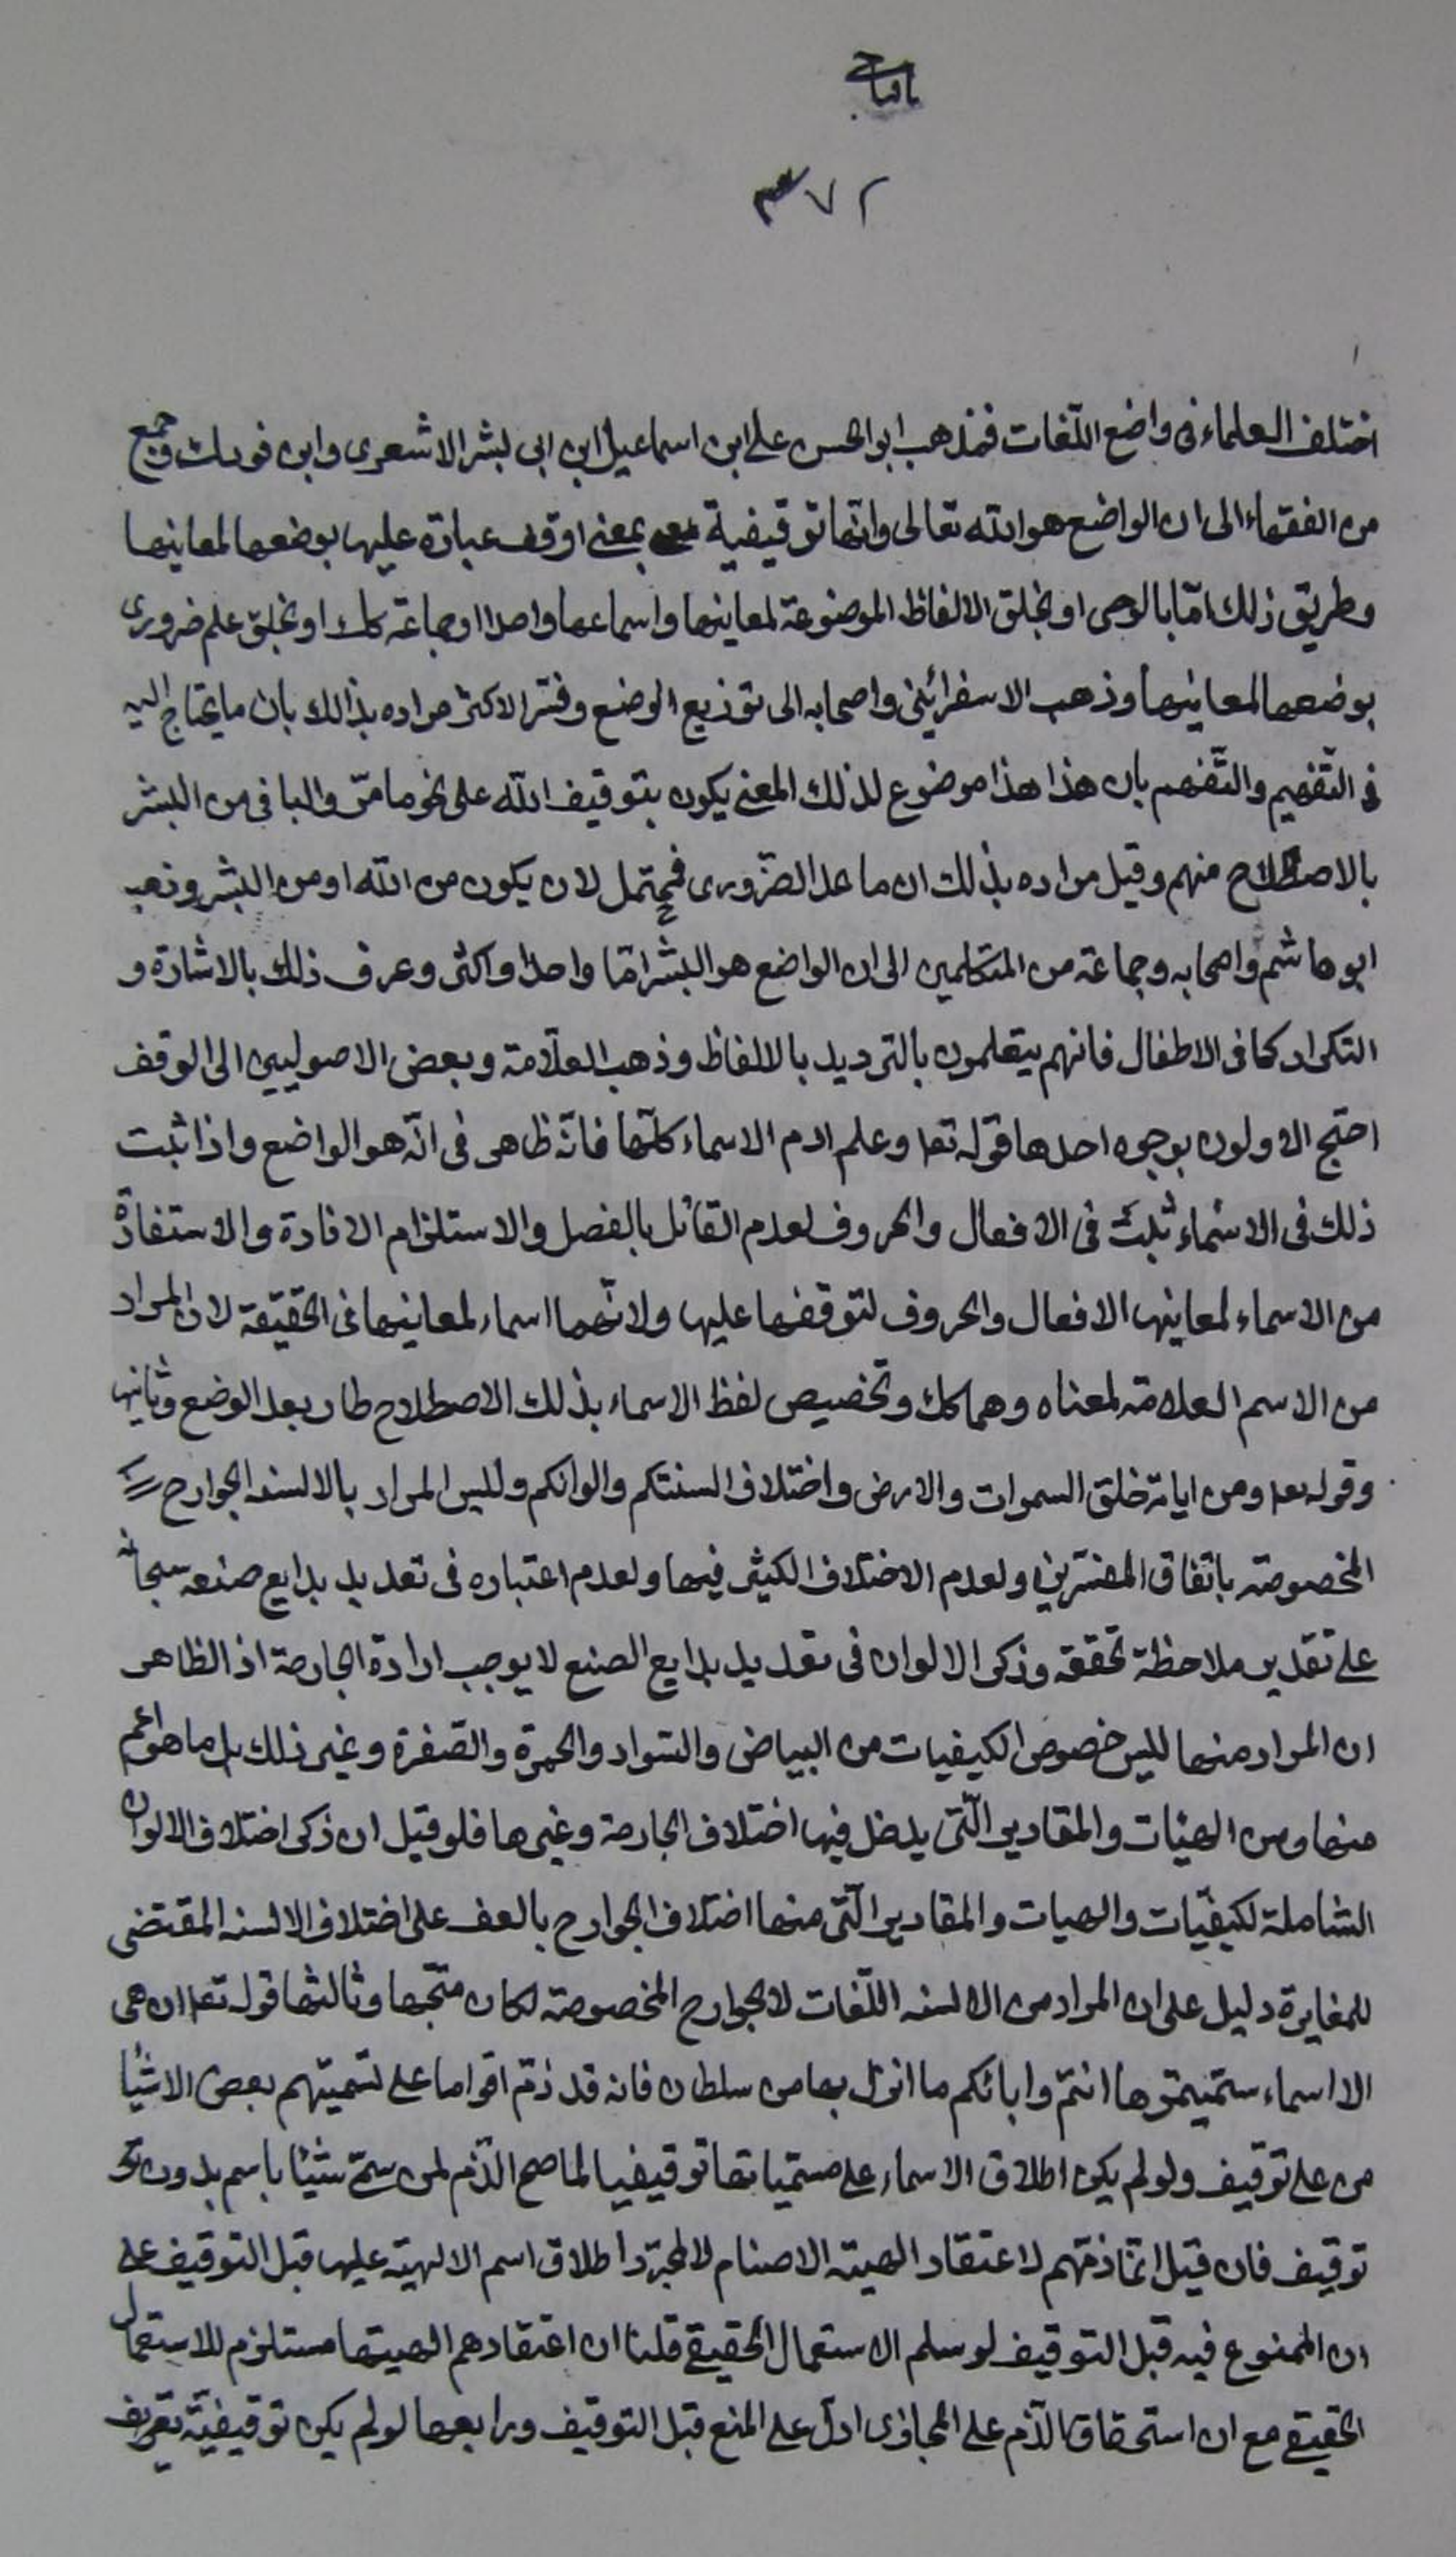 ٣٧٢
اختلف العلماء فى واضع اللّغات فذهب ابو الحسن على ابن اسماعيل ابن ابى بشر الاشعرى وابن فورك وجمع
من الفقهاء الى ان الواضع هو الله تعالى وانّها توقيفية بمعنى اوقف عباده عليها بوضعها لمعاينها
وطريق ذلك امّا بالوحى او بخلق الالفاظ الموضوعة لمعاينها واسماعها واحدا اوجماعة كك او بخلق علم ضرورى
بوضعها لمعاينها وذهب الاسفرائينى واصحابه الى توزيع الوضع وفسّر الاكثر مراده بذالك بان ما يحتاج اليه
فى التّفهيم والتّفهم بان هذا هذا موضوع لذلك المعنى يكون بتوقيف الله على نحو ما مرّ والباقى من البشر
بالاصطلاح منهم وقيل مراده بذلك ان ما عدا الضّرورى فمحتمل لان يكون من الله او من البشر وذهب
ابو هاشم واصحابه وجماعة من المتكلمين الى ان الواضع هو البشر امّا واحدا واكثر وعرف ذلك بالاشارة و
التكرار كما فى الاطفال فانهم يتعلمون بالترديد بالالفاظ وذهب العلّامة وبعض الاصوليين الى الوقف
احتج الاولون بوجوه احدها قوله تعا وعلم ادم الاسماء كلّها فانّه ظاهر فى انّه هو الواضع واذا ثبت
ذلك فى الاسماء ثبت فى الافعال والحروف لعدم القائل بالفصل والاستلزام الافادة والاستفادة
من الاسماء لمعاينها الافعال والحروف لتوقفها عليها ولانّهما اسماء لمعاينها فى الحقيقة لان المراد
من الاسم العلامة لمعناه وهما كك وتخصيص لفظ الاسماء بذلك الاصطلاح طار بعد الوضع وثانيها
وقوله تعا ومن اياته خلق السموات والارض واختلاف السنتكم والوانكم وليس المراد بالالسنه الجوارح
المخصوصة باتفاق المفسّرين ولعدم الاختلاف الكثير فيها ولعدم اعتباره فى تعديد بدايع صنعه سبحانه
على تقدير ملاحظة تحققه وذكر الالوان فى تعديد بدايع الصنع لا يوجب ارادة الجارحة اذ الظاهر
ان المراد منها ليس خصوص الكيفيات من البياض والسّواد والحمرة والصّفرة وغير ذلك بل ما هو اعم
منها ومن الهيئات والمقادير الّتى يدخل فيها اختلاف الجارحة وغيرها فلو قيل ان ذكر اختلاف الالوان
الشاملة لكيفيّات والهيات والمقادير الّتى منها اختلاف الجوارح بالعف على اختلاف الالسنه المقتضى
للمغايرة دليل على ان المراد من الالسنه اللّغات لا الجوارح المخصوصة لكان متّجها وثالثها قوله تعا ان هى
الا اسماء سمّيتموها انتم وابائكم ما انزل بها من سلطان فانه قد ذمّ اقواما على تسميتهم بعض الاشيا
من على توقيف ولو لم يكن اطلاق الاسماء على مسمّياتها توقيفيا لما صح الذّم لمن سمّى شيئا باسم بدون
توقيف فان قيل انّما ذمّهم لاعتقاد الهية الاصنام لا لمجرّد اطلاق اسم الالهية عليها قبل التوقيف على
ان الممنوع فيه قبل التوقيف لو سلم الاستعمال الحقيقى قلنا ان اعتقادهم الهيتها مستلزم للاستعمال
الحقيقى مع ان استحقاق الذّم على المجازى ادلّ على المنع قبل التوقيف ورابعها لو لم يكن توقيفيّة